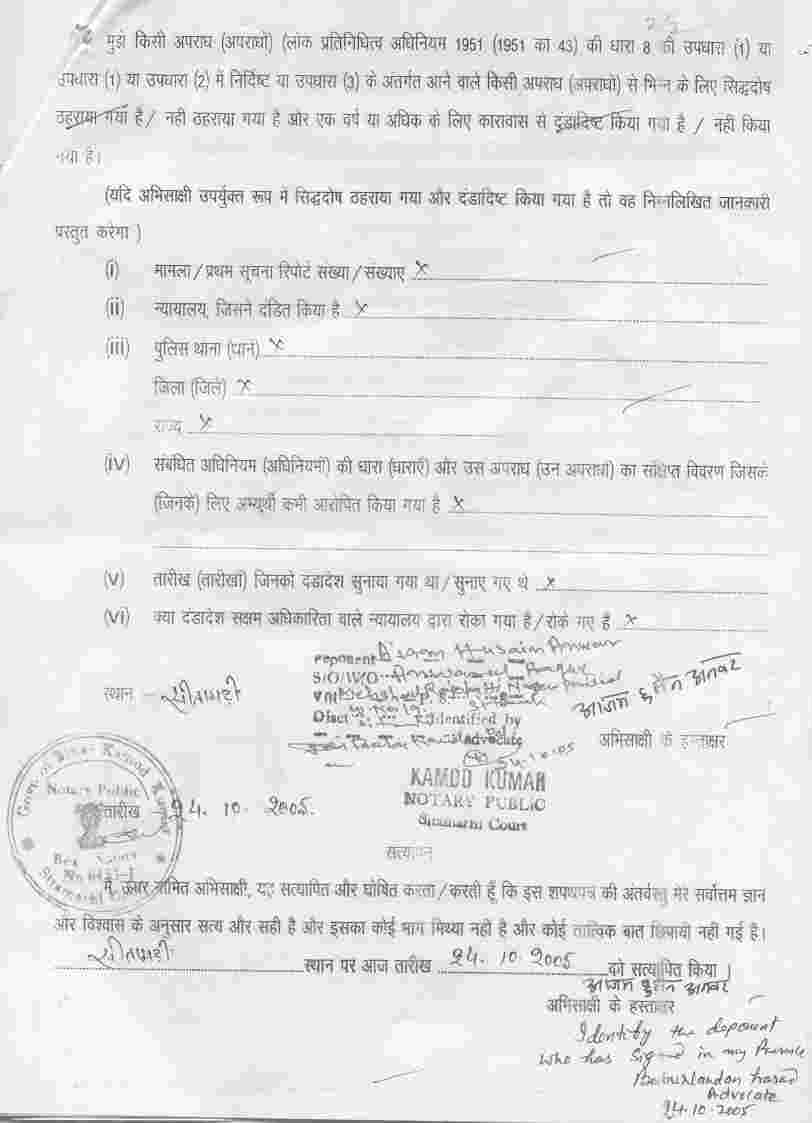 मुझे किसी अपराध (अपराधों) (लोक प्रतिनिधित्व अधिनियम 1951 (1951 का 43) की धारा 8 की उपधारा (1) या
उपधारा (1) या उपधारा (2) में निर्दिष्ट या उपधारा (3) के अंतर्गत आने वाले किसी अपराध (अपराधों) से भिन्न के लिए सिद्धदोष
ठहराया गया है / नहीं ठहराया गया है और एक वर्ष या अधिक के लिए कारावास से दंडादिष्ट किया गया है / नहीं किया
गया है।
(यदि अभिसाक्षी उपर्युक्त रूप में सिद्धदोष ठहराया गया और दंडादिष्ट किया गया है तो वह निम्नलिखित जानकारी
प्रस्तुत करेगा )
(i) मामला / प्रथम सूचना रिपोर्ट संख्या / संख्याएं x
(ii) न्यायालय, जिसने दंडित किया है x
(iii) पुलिस थाना (थाने) x
जिला (जिले) x
राज्य x
(iv) संबंधित अधिनियम (अधिनियमों) की धारा (धाराएँ) और उस अपराध (उन अपराधों) का संक्षिप्त विवरण जिसके
(जिनके) लिए अभ्यर्थी कभी आरोपित किया गया है x
(v) तारीख (तारीखों) जिनको दंडादेश सुनाया गया था / सुनाए गए थे x
(vi) क्या दंडादेश सक्षम अधिकारिता वाले न्यायालय द्वारा रोका गया है / रोके गए हैं x
Deponent Husain Anwar
S/O/W/O
Vill
स्थान - सीतामढ़ी
Distt Identified by
Advocate
24.10.05
आजम हुसैन अनवर
अभिसाक्षी के हस्ताक्षर
KAMOD KUMAR
NOTARY PUBLIC
Sitamarhi Court
Govt. of Bihar Kamod Kumar
Notary Public
तारीख - 24. 10. 2005.
Sitamarhi
सत्यापन
मैं, ऊपर नामित अभिसाक्षी, यह सत्यापित और घोषित करता / करती हूँ कि इस शपथपत्र की अंतर्वस्तु मेरे सर्वोत्तम ज्ञान
और विश्वास के अनुसार सत्य और सही है और इसका कोई भाग मिथ्या नहीं है और कोई तात्विक बात छिपायी नहीं गई है।
सीतामढ़ी स्थान पर आज तारीख 24.10.2005 को सत्यापित किया।
आजम हुसैन अनवर
अभिसाक्षी के हस्ताक्षर
Identify the deponent
who has signed in my Presence
Prasad
Advocate
24.10.2005